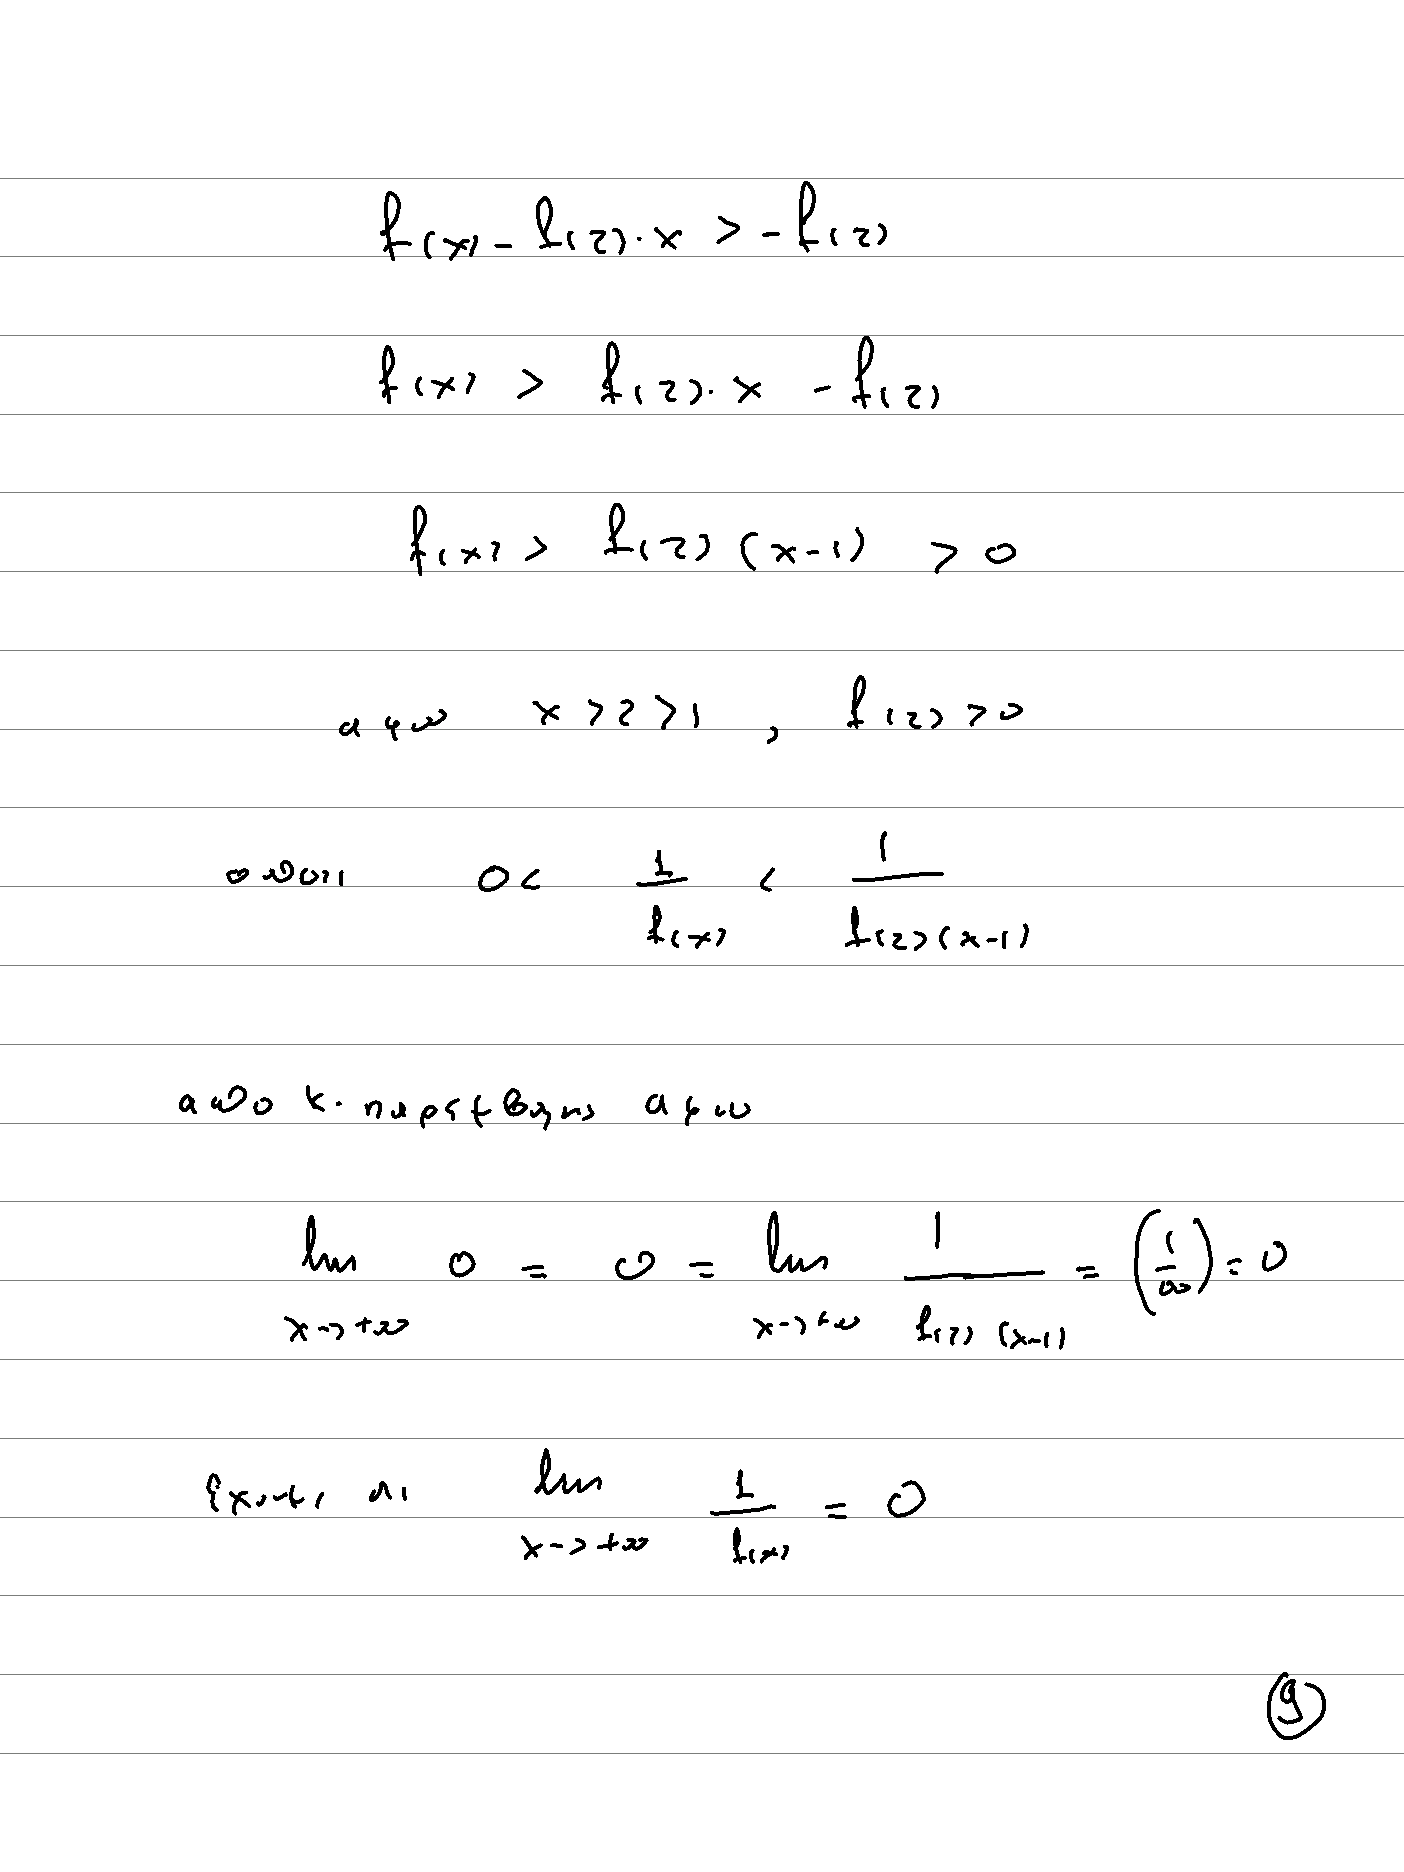 f(x) - f(2)·x > -f(2)
f(x) > f(2)·x - f(2)
f(x) > f(2) (x-1) > 0
αφου x > 2 > 1 , f(2) > 0
οποτε 0 < 1/f(x) < 1/(f(2)(x-1))
απο κ. παρεμβολης αφου
lim x->+∞ 0 = 0 = lim x->+∞ 1/(f(2)(x-1)) = (1/∞) = 0
Εχουμε οτι lim x->+∞ 1/f(x) = 0
9